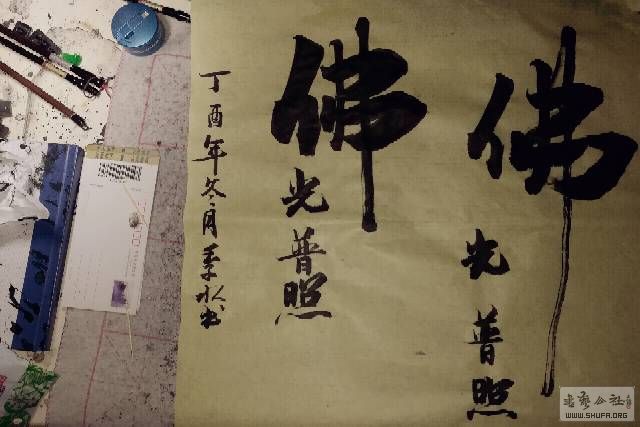 佛光普照
佛光普照
丁酉年冬月季水书
书艺公社
WWW.SHUFA.ORG